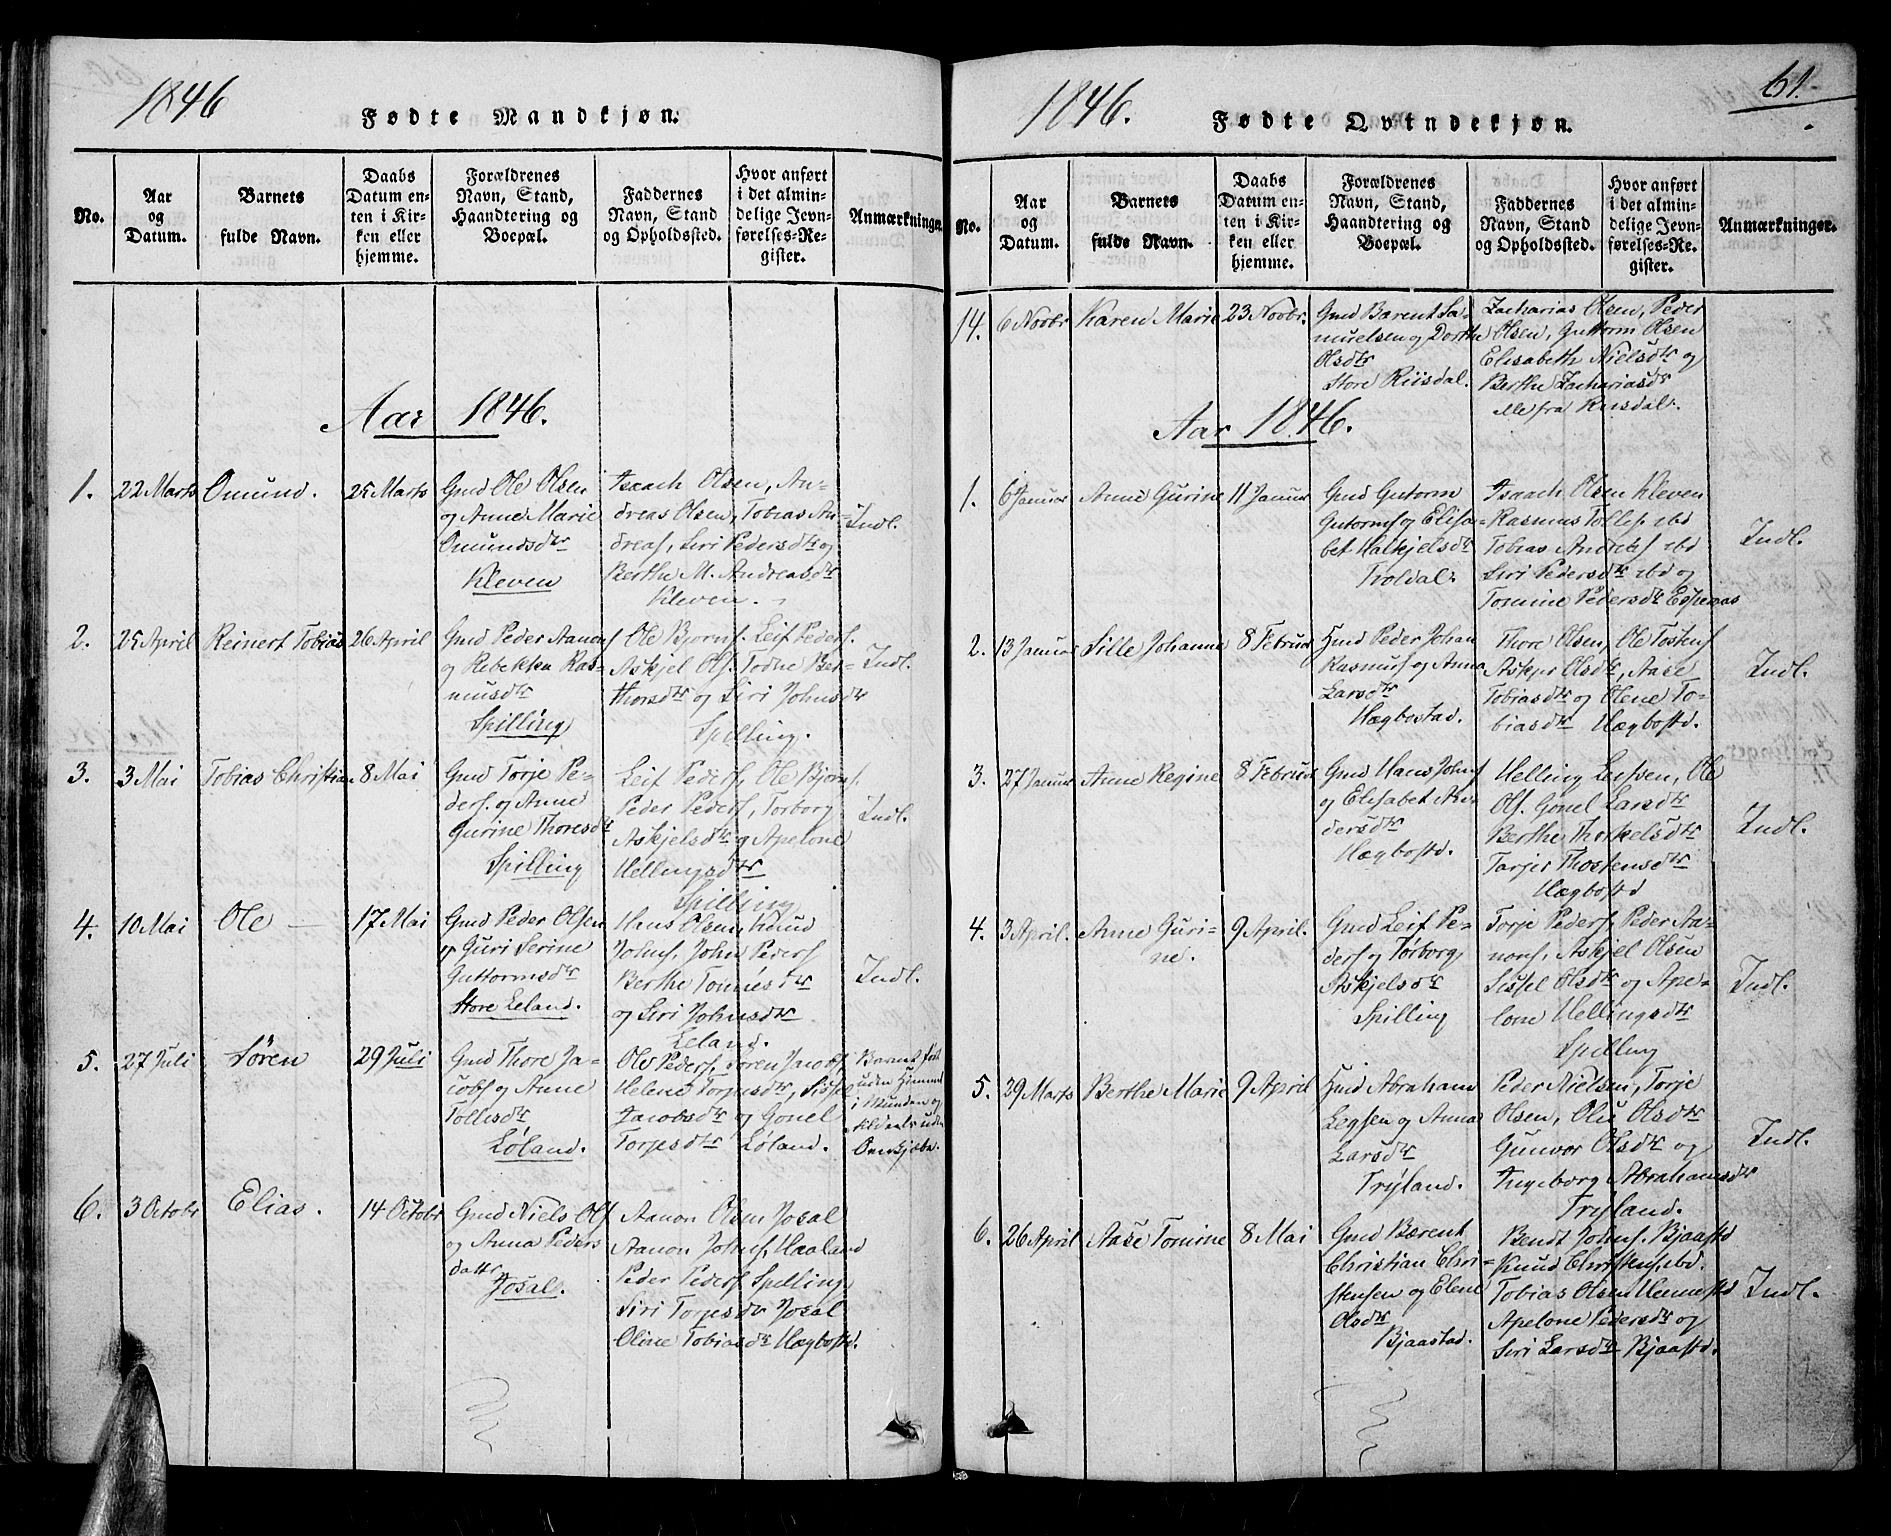 1846
Fødte Mandkjøn.
No.
Aar
og
Datum.
Barnets
fulde Navn.
Daabs
Datum en-
ten i Kir-
ken eller
hjemme.
Forældrenes
Navn, Stand,
Haandtering og
Boepæl.
Faddernes
Navn, Stand
og Opholdssted.
Hvor anført
i det almin-
delige Jevn-
førelses-Re-
gister.
Anmærkninger.
Aar 1846.
1.
22 Marts
Omund.
25 Marts
Gmd Ole Olsen
og Anne Marie
Omundsdtr
Kleven
Isaach Olsen, An-
dreas Olsen, Tobias An-
dreas, Siri Pedersdtr og
Berthe M. Andreasdtr
Kleven.
Indl.
2.
25 April
Reinert Tobias
26 April
Gmd Peder Aanons
og Rebekka Ras-
musdtr
Spilling
Ole Bjorns. Leif Peders.
Askjel Ols. Todne Ber-
thorsdtr og Siri Johnsdtr
Spilling.
Indl.
3.
3 Mai
Tobias Christian
8 Mai
Gmd Torje Pe-
ders. og Anne
Gurine Thoresdtr
Spilling
Leif Peders, Ole Bjorns.
Peder Peders, Torborg
Askjelsdtr og Apelone
Hellingsdtr
Spilling
Indl.
4.
10 Mai
Ole
17 Mai
Gmd Peder Olsen
og Guri Serine
Guttormsdtr
Store Leland.
Hans Olsen, Knud
Johns, John Peders
Berthe Tønnesdtr
og Siri Johnsdtr
Leland.
Indl.
5.
27 Juli
Søren
29 Juli
Gmd Thore Ja-
cobs og Anne
Tollisdtr
Løland.
Ole Peders, Søren Jacobs,
Helene Torjusdtr, Sissel
Jacobsdtr og Gonel
Torjesdtr Løland.
Barnet født
uden Hjemmed
i Munden og
6.
3 Octobr
Elias.
14 Octobr
Gmd Niels Ols
og Anna Peders
datter
Josal.
Aanon Olsen Josal
Aanon Johns, Haaland
Peder Peders Spilling
Siri Torjesdtr Josal
Oline Tobiasdtr Hægbostd.
1846.
61.
Fødte Qvindekjøn.
No.
Aar
og
Datum.
Barnets
fulde Navn.
Daabs
Datum en-
ten i Kir-
ken eller
hjemme.
Forældrenes
Navn, Stand,
Haandtering og
Boepæl.
Faddernes
Navn, Stand
og Opholdssted.
Hvor anført
i det almin-
delige Jevn-
førelses-Re-
gister.
Anmærkninger.
14.
6 Novbr
Karen Marie
23 Novbr.
Gmd Barent Sa-
muelsen og Dorthe
Olsdtr
Store Riisdal.
Zacharias Olsen, Peder
Olsen, Guttorm Olsen
Elisabeth Nielsdtr og
Berthe Zachariasdtr
alle fra Riisdal.
Aar 1846.
1.
6 Januar
Anne Gurine
11 Januar
Gmd Gutorm
Gutorms og Elisa-
bet Halkjelsdtr
Troldal.
Isaach Olsen Kleven
Rasmus Tolles. ibd
Tobias Andreas ibd
Siri Pedersdtr ibd og
Tomine Pedersdtr Espenæs
Indl.
2.
13 Januar
Sille Johanne
8 Februar
Hmd Peder Johan
Rasmus og Anna
Larsdtr
Hægbostad.
Thore Olsen, Ole Tostens
Askjer Olsdtr, Aase
Tobiasdtr og Olene To-
biasdtr Hægbostd.
Indl.
3.
27 Januar
Anne Regine
8 Februar
Gmd Hans Johns
og Elisabet An-
dersdtr
Hægbostd.
Helling Leifsen, Ole
Ols. Gonel Larsdtr
Berthe Thorkelsdtr
Tarjer Thostensdtr
Hægbostd
Indl.
4.
3 April.
Anne Guri-
ne.
9 April.
Gmd Leif Pe-
ders og Torborg
Askjelsdtr
Spilling
Torje Peders, Peder Aa-
nons, Askjel Olsen
Sissel Olsdtr og Ape-
lone Hellingsdtr
Spilling
Indl.
5.
29 Marts
Berthe Marie
9 April
Hmd Abraham
Legsen og Anna
Larsdtr
Tryland.
Peder Nielsen, Torje
Olsen, Oli Olsdtr
Gunvor Olsdtr og
Ingeborg Abrahamsdtr
Tryland.
Indl.
6.
26 April
Aase Tomine
8 Mai
Gmd Bærent
Christian Chri-
stensen og Elene
Olsdtr
Bjaastad.
Bendt Johns. Bjaastd
Knud Christens, ibd.
Tobias Olsen Hemestd
Apelone Pedersdtr og
Siri Larsdtr Bjaastd.
Indl.